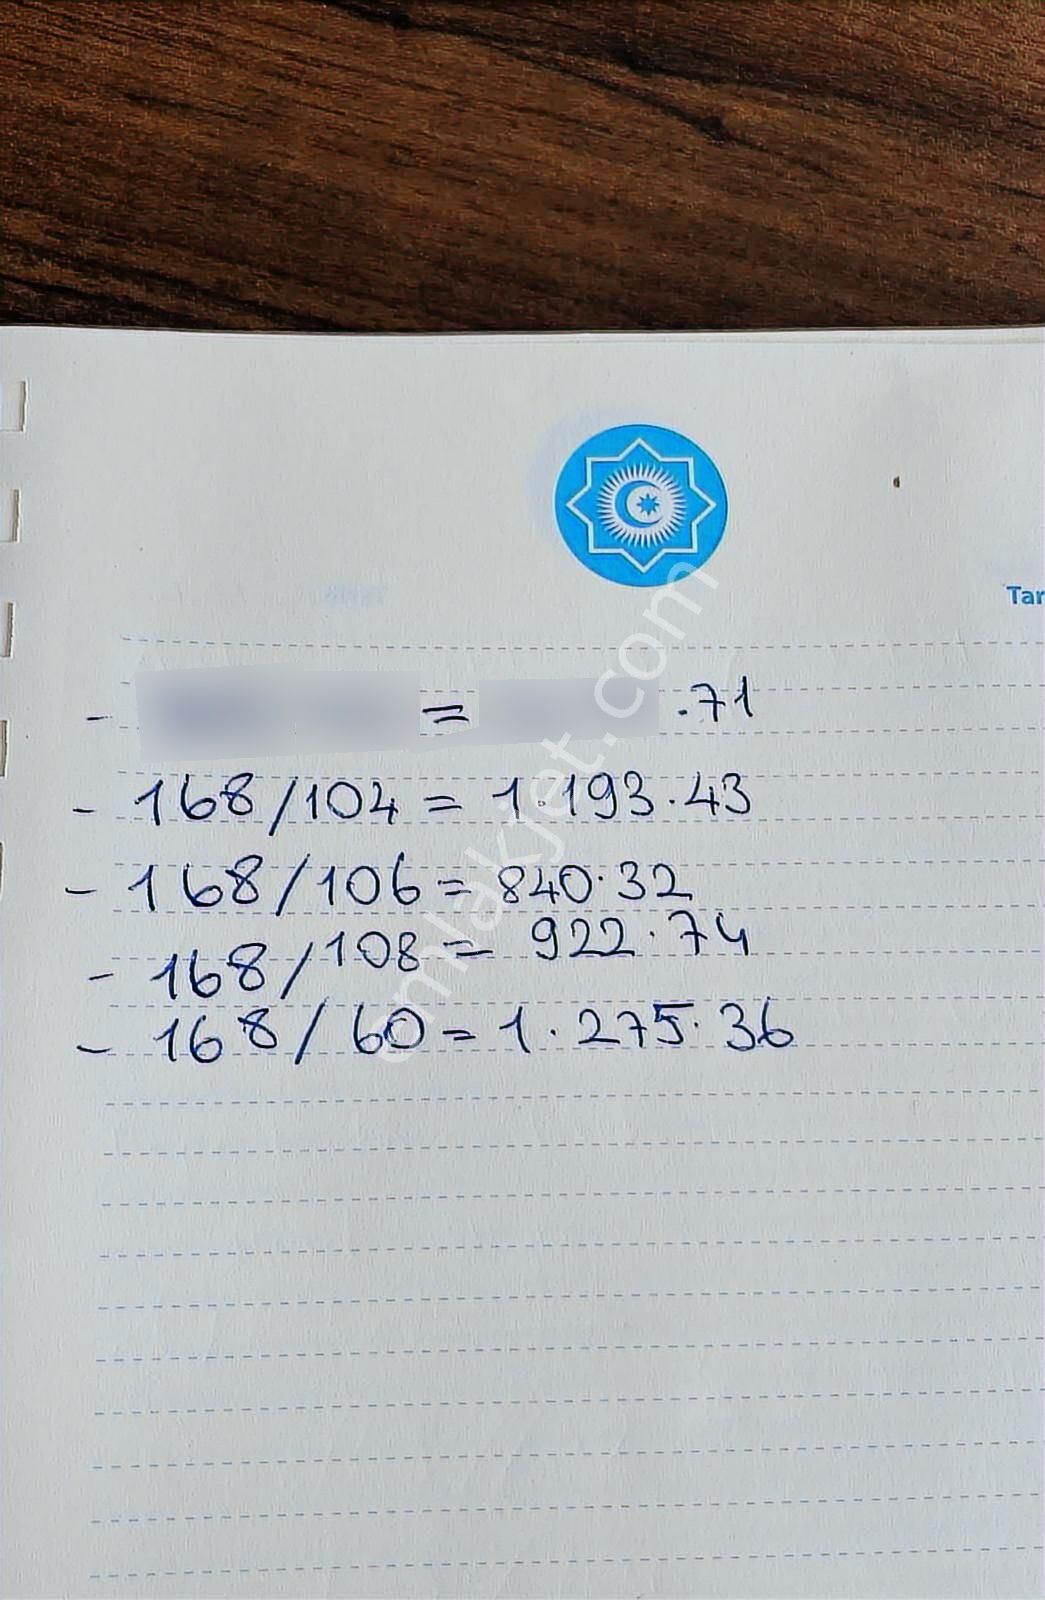 Tar
- = .71
- 168/104 = 1.193.43
- 168/106 = 840.32
- 168/108 = 922.74
- 168/60 = 1.275.36
emlakjet.com